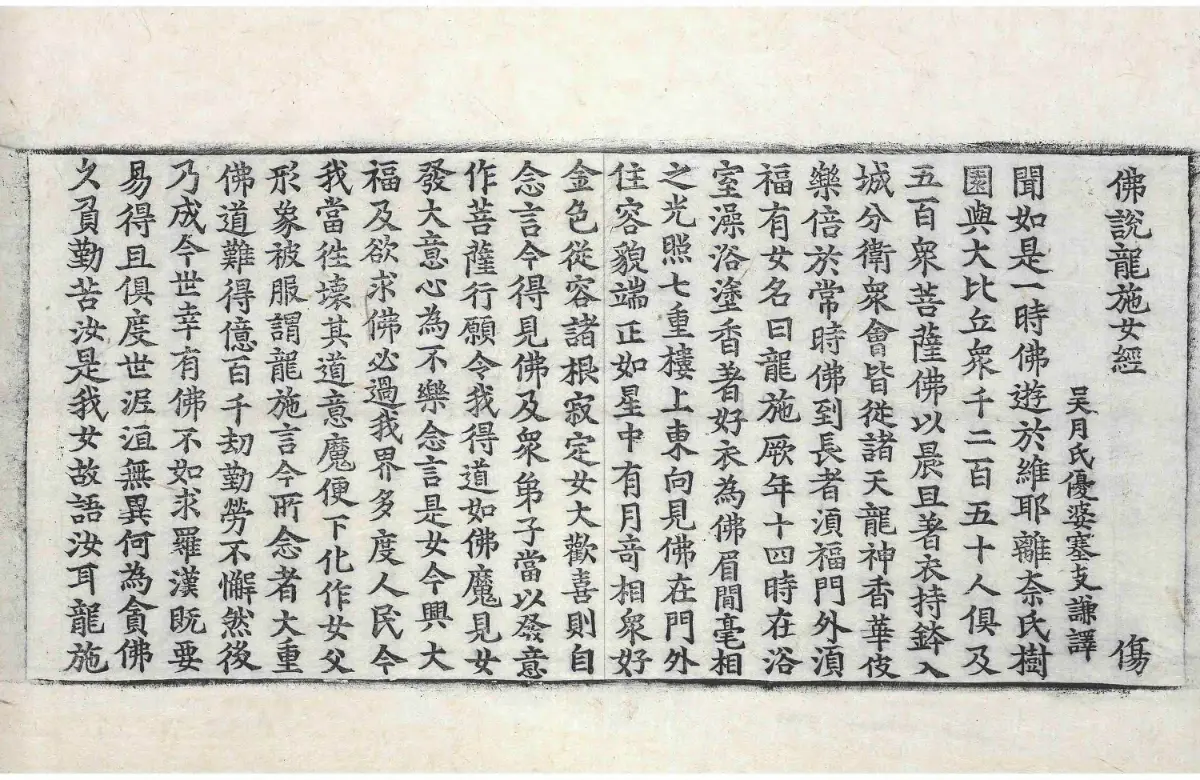 佛說龍施女經 傷
吳月氏優婆塞支謙譯
聞如是一時佛遊於維耶離奈氏樹
園與大比丘眾千二百五十人俱及
五百眾菩薩佛以晨旦著衣持鉢入
城分衛眾會皆從諸天龍神香華伎
樂倍於常時佛到長者須福門外須
福有女名曰龍施厥年十四時在浴
室澡浴塗香著好衣為佛眉間毫相
之光照七重樓上東向見佛在門外
住容貌端正如星中有月奇相眾好
金色從容諸根寂定女大歡喜則自
念言今得見佛及眾弟子當以發意
作菩薩行願令我得道如佛魔見女
發大意心為不樂念言是女今興大
福及欲求佛必過我界多度人民今
我當徃壞其道意魔便下化作女父
形象被服謂龍施言今所念者大重
佛道難得億百千劫勤勞不懈然後
乃成今世幸有佛不如求羅漢既要
易得且俱度世泥洹無異何為貪佛
久負勤苦汝是我女故語汝耳龍施